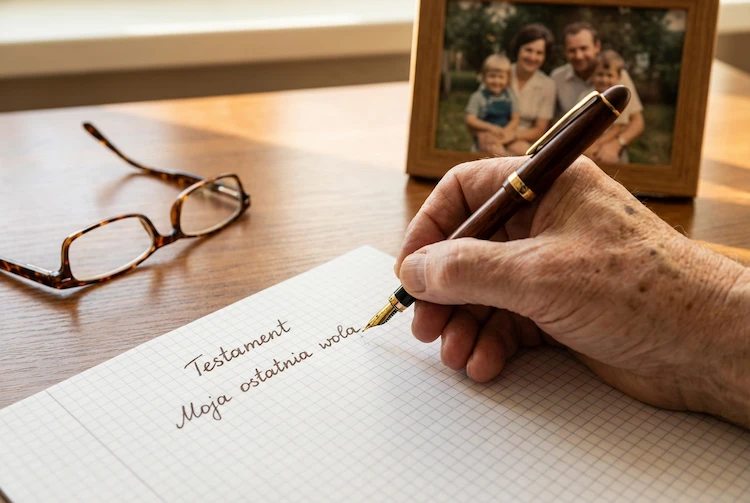 Testament
Moja ostatnia wola